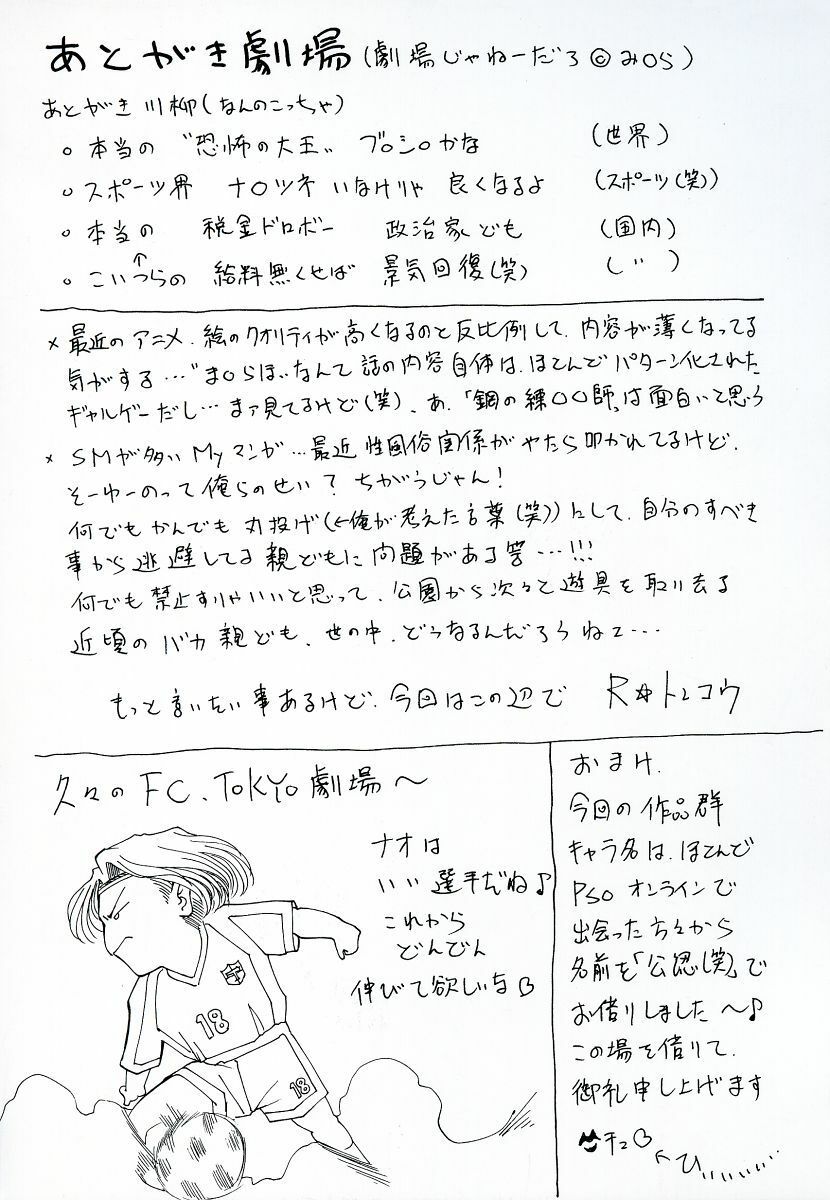 あとがき劇場(劇場じゃねーだろ©みOら)
あとがき川柳(なんのこっちゃ)
○本当の “恐怖の大王„ ブOシOかな (世界)
○スポーツ界 ナOツネ いなけりゃ 良くなるよ (スポーツ(笑))
○本当の 税金ドロボー 政治家ども (国内)
↑
○こいつらの 給料無くせば 景気回復(笑) (〃)
×最近のアニメ、絵のクオリティが高くなるのと反比例して、内容が薄くなってる
気がする…“まOらほ„なんて話の内容自体は、ほとんどパターン化された
ギャルゲーだし…まァ見てるけど(笑)、あ、「鋼の練〇〇師」は面白いと思う
×SMが多いMyマンガ…最近性風俗関係がやたら叩かれてるけど、
そーゆーのって俺らのせい?ちがうじゃん!
何でもかんでも丸投げ(←俺が考えた言葉(笑))にして、自分のすべき
事から逃避してる親どもに問題がある筈…!!!
何でも禁止すりゃいいと思って、公園から次々と遊具を取り去る
近頃のバカ親ども、世の中、どうなるんだろうねェ…
もっと言いたい事あるけど、今回はこの辺で R☆トンコウ
久々のFC、TOKYO劇場〜
ナオは
いい選手だね♪
これから
どんどん
伸びて欲しいな
18
18
おまけ、
今回の作品群
キャラ名は、ほとんど
PSOオンラインで
出会った方々から
名前を「公認(笑)」で
お借りしました〜♪
この場を借りて、
御礼申し上げます